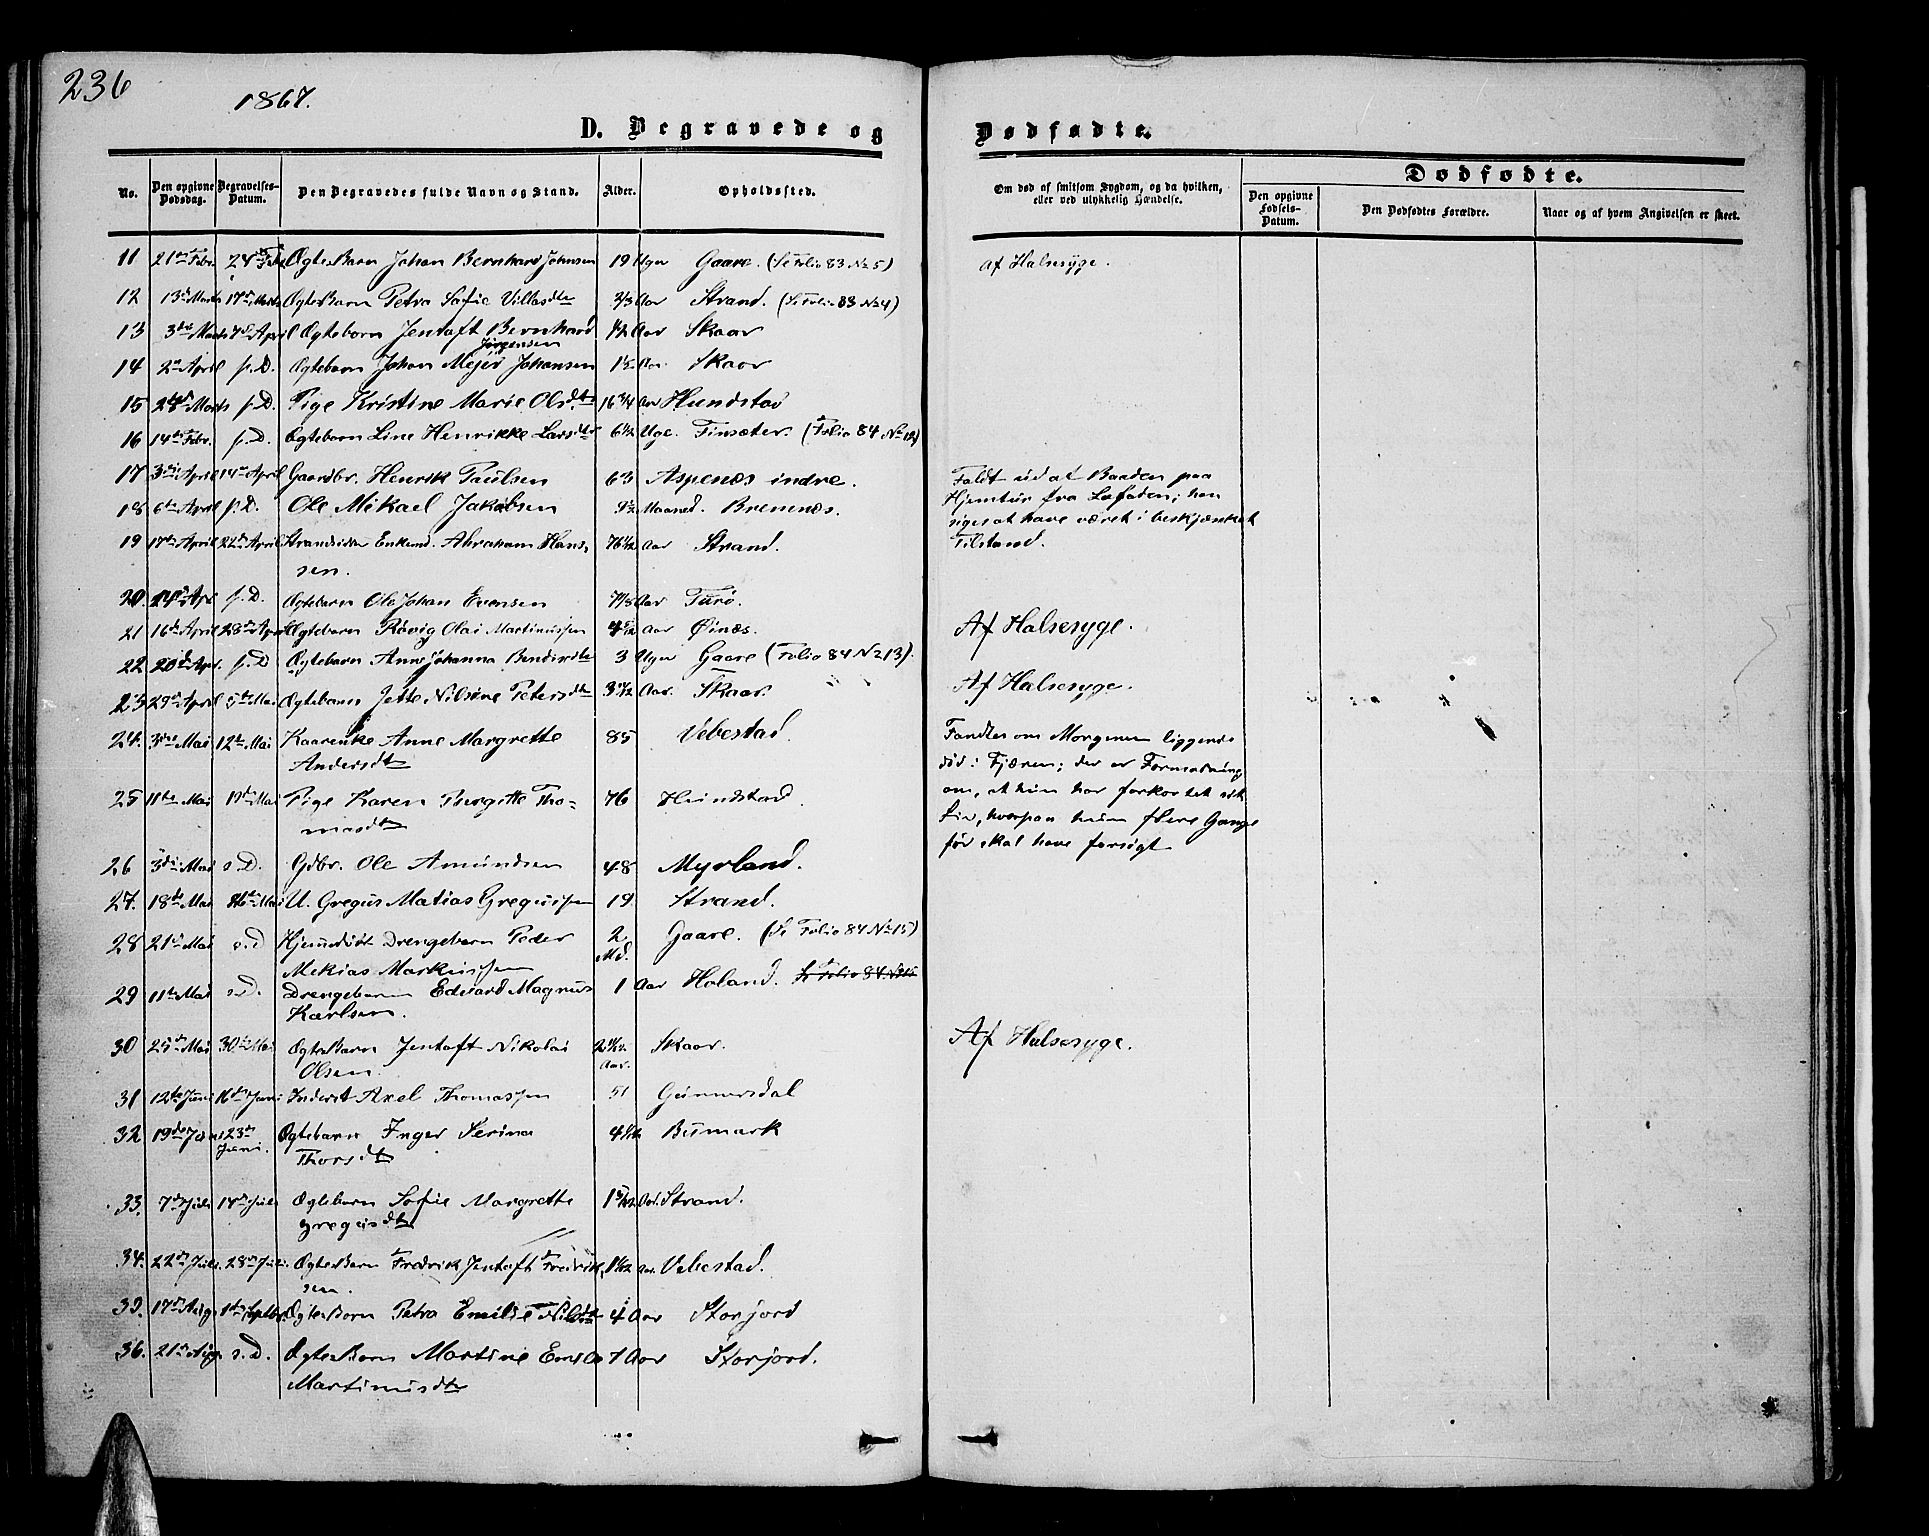 236
1867.
D. Begravede og
Dødfødte.
No. Den opgivne Dødsdag. Begravelses-Datum. Den Begravedes fulde Navn og Stand. Alder. Opholdssted.
Om død af smitsom Sygdom, og da hvilken, eller ved ulykkelig Hændelse.
Dødfødte.
Den opgivne Fødsels-Datum. Den Dødfødtes Forældre. Naar og af hvem Angivelsen er skeet.
11 21de Febr. 24de Febr Ægte Barn Johan Bernhard Johnsen 19 Uger Gaare. (Se Folio 83 No 5) Af Halsesyge.
12 13de Marts 17de Marts Ægte Barn Petra Sofie Villasdtr 2/3 Aar Strand. (Se Folio 83 No 4)
13 3die Marts 7de April Ægtebarn Jentoft Bernhard 1/2 Aar Skaar
Jørgensen
14 2den April s. D. Ægtebarn Johan Mejer Johansen Aar. Skaar
15 24de Marts s. D. Pige Kristine Marie Olsdtr 16 3/4 Aar Hundstad
16 14de Febr. s. D. Ægtebarn Line Henrikke Larsdtr 6 1/2 Uge. Finsæter. (Folio 84 No 12)
17 3die April 14de April Gaardbr. Henrik Paulsen 63 Aspenæs indre.
Faldt ud af Baaden paa
18 6te April s. D. Ole Mikael Jakobsen Maaned. Bremnæs.
Hjemtur fra Lofoden; han
siges at have været i beskjænket
19 17de April 22de April Strandsidder Enkemd. Abraham Han- 76 1/2 Aar Strand.
Tilstand.
sen.
20 24de Apr s. D. Ægtebarn Ole Johan Evensen 7 1/8 Aar Furø.
21 16de April 28de April Ægtebarn Rövig Olai Martinussen 4 5/12 Aar Øinæs. Af Halsesyge.
22. 20de Apr. s. D Ægtebarn Anne Johanna Bendixdtr 3 Uger Gaare (Folio 84 No 13).
23 29de April 5te Mai Ægtebarn Jette Nilsine Petersdtr Aar. Skaar. Af Halsesyge.
24. 3die Mai 12te Mai Kaarenke Anne Margrette 85 Vebestad.
Andersdtr
Fandtes om Morgenen liggende
død i Fjæren; der er Formodning
25 11te Mai 19de Mai Pige Karen Bergitte Tho- 76 Hundstad.
masdtr
om, at hun har forkortet sit
Liv, hvorpaa hun flere Gange
før skal have forsøgt
26 3die Mai s. D. Gdbr. Ole Amundsen 48 Myrland.
27. 18de Mai 26de Mai U. Gregus Matias Gregussen 19 Strand.
28 21de Mai s. D Hjemdøbt Drengebarn Peder 2 Md. Gaare. (Se Folio 84 No 15)
Mekias Markussen
29 11te Mai s. D. Drengebarn Edvard Magnus 1 Aar Holand. Se Folio 84 No 15
Karlsen.
30 25de Mai 30te Mai Ægte Barn Jentoft Nikolai 2 1/2 Aar. Skaar. Af Halsesyge.
Olsen.
31 12te Juni 16de Juni Inderst Axel Thomassen 51 Gunnersdal
32 19de Juni 23de Juni. Ægtebarn Inger Serina 4 1/2 Bumark
Thorsdtr
33. 7de Juli 14de Juli Ægtebarn Sofie Margrette Aar. Strand.
Gregusdtr
34. 22de Juli. 28de Juli. Ægte Barn Fredrik Jentoft Fredrik- 1 1/2 Aar. Vebestad.
sen.
35. 17de Aug 1ste Septbr. Ægte Barn Petra Emilie Nilsdtr 4 Aar Storjord
36. 21de Aug. s. D. Ægte Barn Martine Emilie 7 Aar Storjord.
Martinusdtr